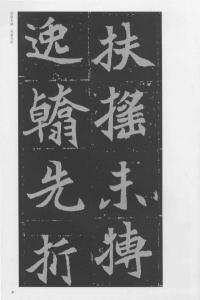 扶搖未摶
逸翰先折